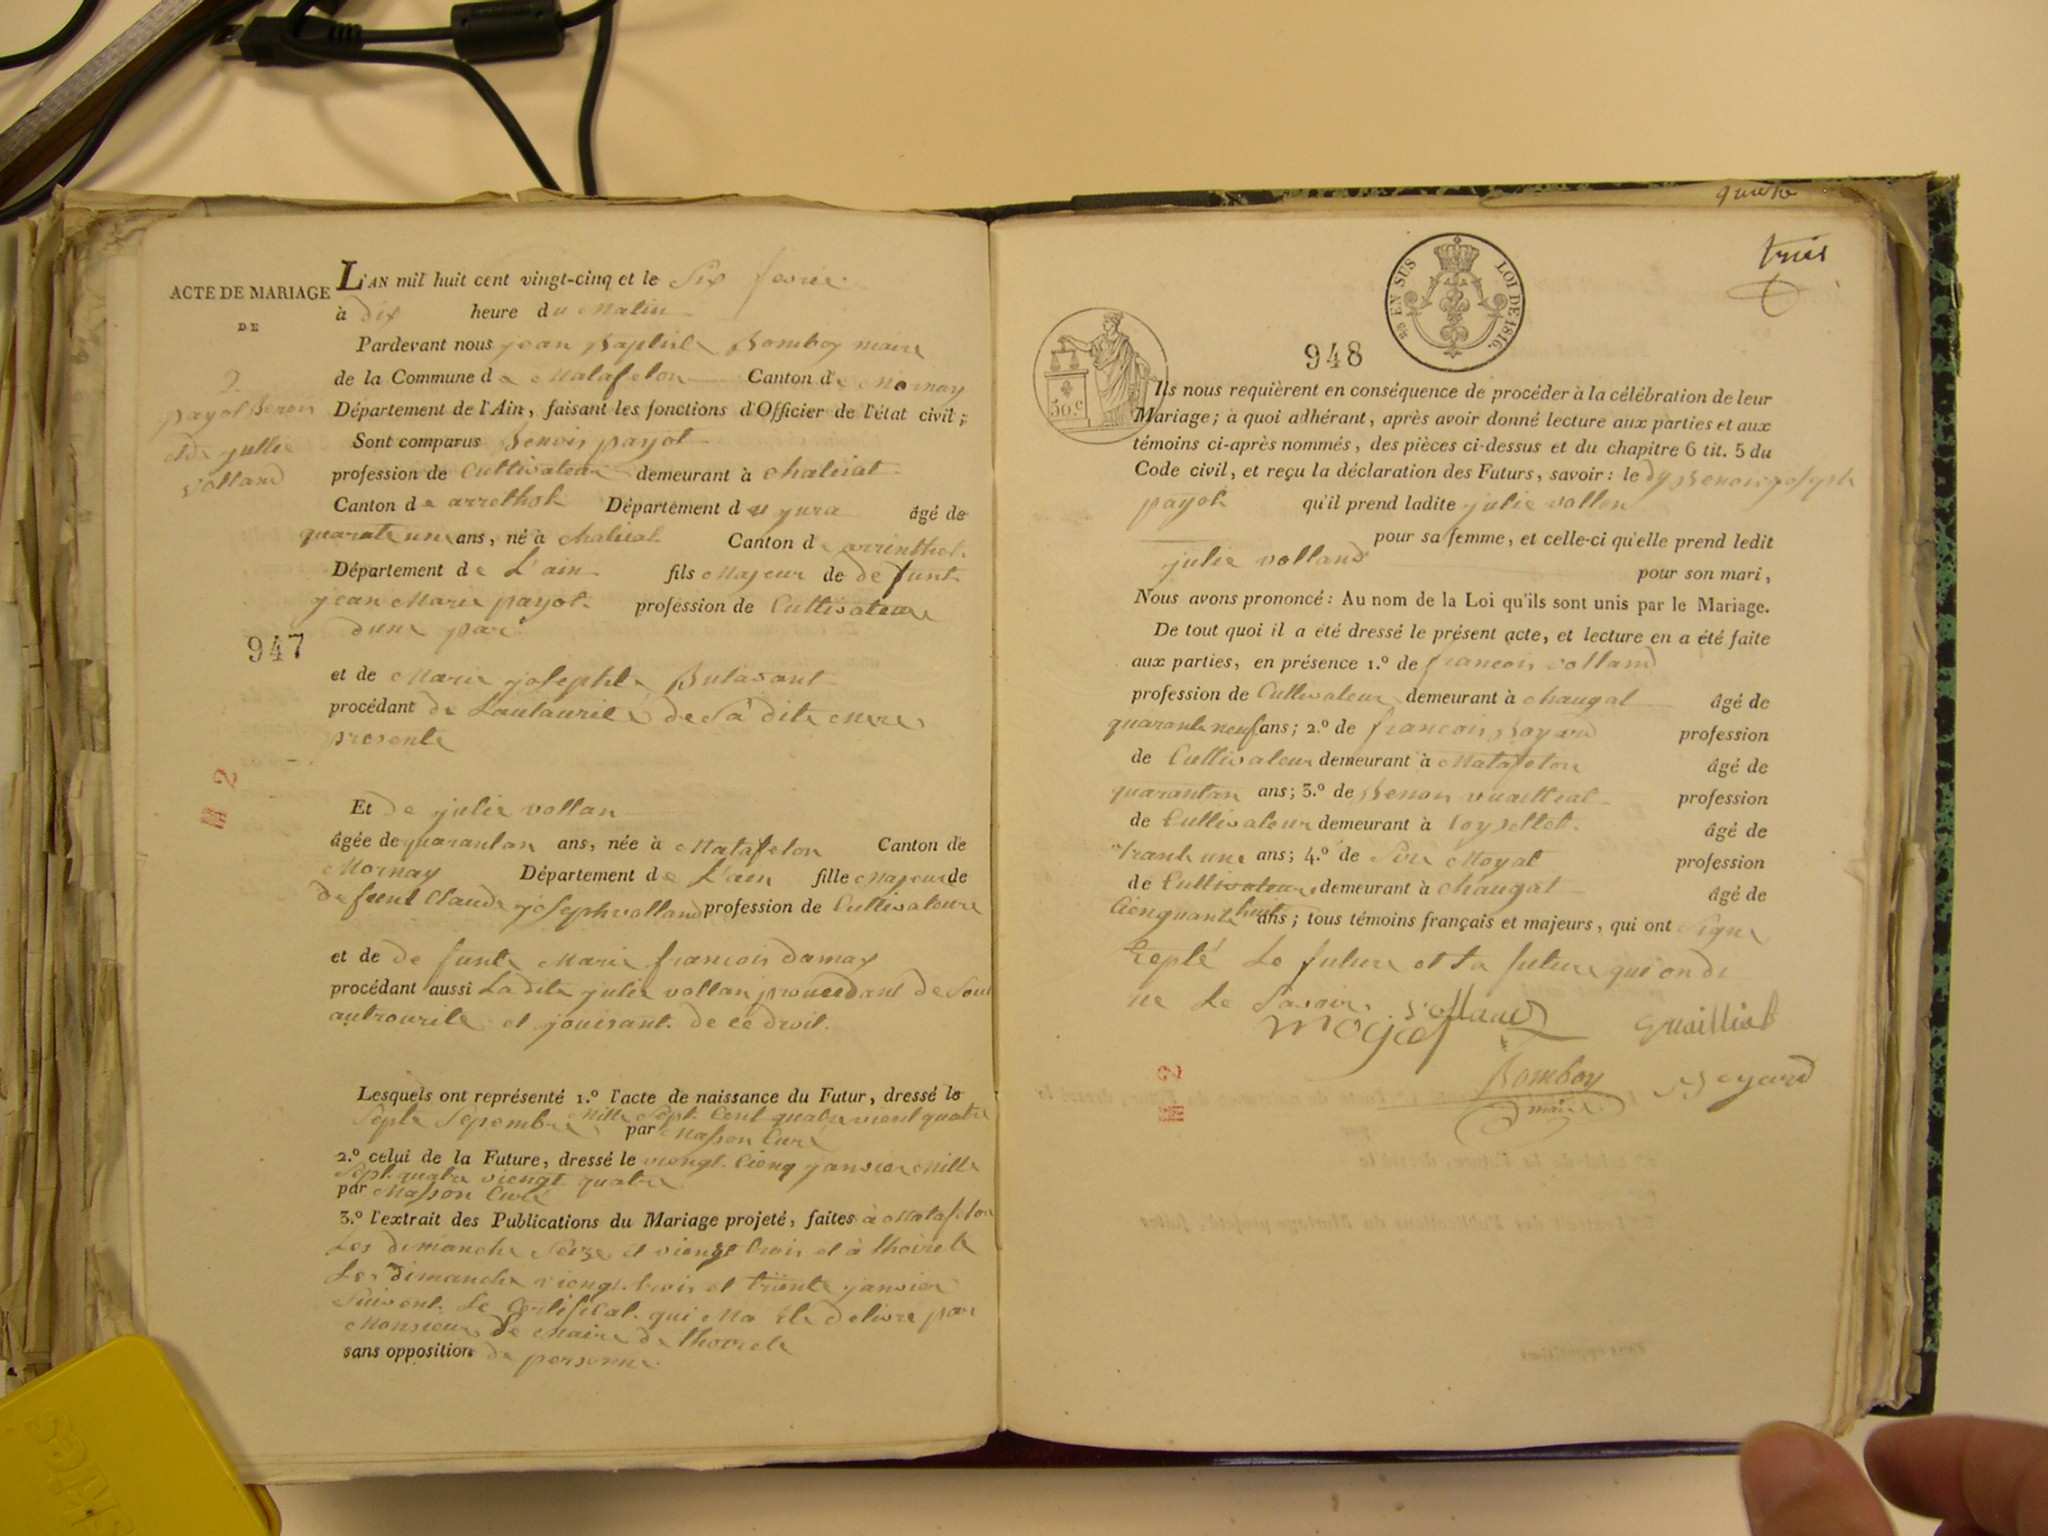 ACTE DE MARIAGE
DE
2
payol Benoi
et de jullie
volland
947
L'AN mil huit cent vingt-cinq et le Six fevrie
à dix heure du Matin
Pardevant nous jean Baptiste Bomboy maire
de la Commune de Matafelon Canton de Mornay
Département de l'Ain, faisant les fonctions d'Officier de l'état civil;
Sont comparus Benois payol
profession de Cultivateur demeurant à Chaléat
Canton de arrethol Département du jura âgé de
quarateune ans, né à Chaléat Canton de arrinthol
Département de L'ain fils Majeur de defunt
jean Marie payol profession de Cultivateur
dune par
et de Marie josephte Butavant
procédant de Lautaurité de Sa dite mere
presente
Et de julie vollan
âgée de quarantan ans, née à Matafelon Canton de
Mornay Département de L'ain fille Majeur de
defunt Claude joseph volland profession de Cultivateur
et de defunte Marie francois damay
procédant aussi Ladite julie vollan proucedant de Sont
autrourite et jouisant de ce droit.
Lesquels ont représenté 1.º l'acte de naissance du Futur, dressé le
Septe Sepembre Mille Sept Cent quatre vient quatre
par Masson Curé
2.º celui de la Future, dressé le viengt Cienq janvier Mille
Sept quatre viengt quatre
par Masson Curé
3.º l'extrait des Publications du Mariage projeté, faites à Matafelon
Les dimanche Seize et viengt trois et à thoirete
Les dimanche viengt trois et triente janvier
Suivent Le Certificat qui Ma Ete delivre par
Monsieur Le Maire de thoirete
sans opposition de personne
quatre
trois
EN SUS
LOI DE 1816.
50 c
948
Ils nous requièrent en conséquence de procéder à la célébration de leur
Mariage; à quoi adhérant, après avoir donné lecture aux parties et aux
témoins ci-après nommés, des pièces ci-dessus et du chapitre 6 tit. 5 du
Code civil, et reçu la déclaration des Futurs, savoir: le dy Benoi joseph
payol qu'il prend ladite julie vollan
pour sa femme, et celle-ci qu'elle prend ledit
julie volland pour son mari,
Nous avons prononcé: Au nom de la Loi qu'ils sont unis par le Mariage.
De tout quoi il a été dressé le présent acte, et lecture en a été faite
aux parties, en présence 1.º de francois volland
profession de Cultivateur demeurant à Chaugat âgé de
quarante neuf ans; 2.º de francois Boyard profession
de Cultivateur demeurant à Matafelon âgé de
quarantan ans; 3.º de Benoi vuailliat profession
de Cultivateur demeurant à Coyselet âgé de
trante une ans; 4.º de Moyat profession
de Cultivateur demeurant à Chaugat âgé de
Cienquante huit ans; tous témoins français et majeurs, qui ont Signe
Cepté Le future et La future qui on di
ne Le Savoir
moyat volland Guailliat
Bomboy Boyard
maire